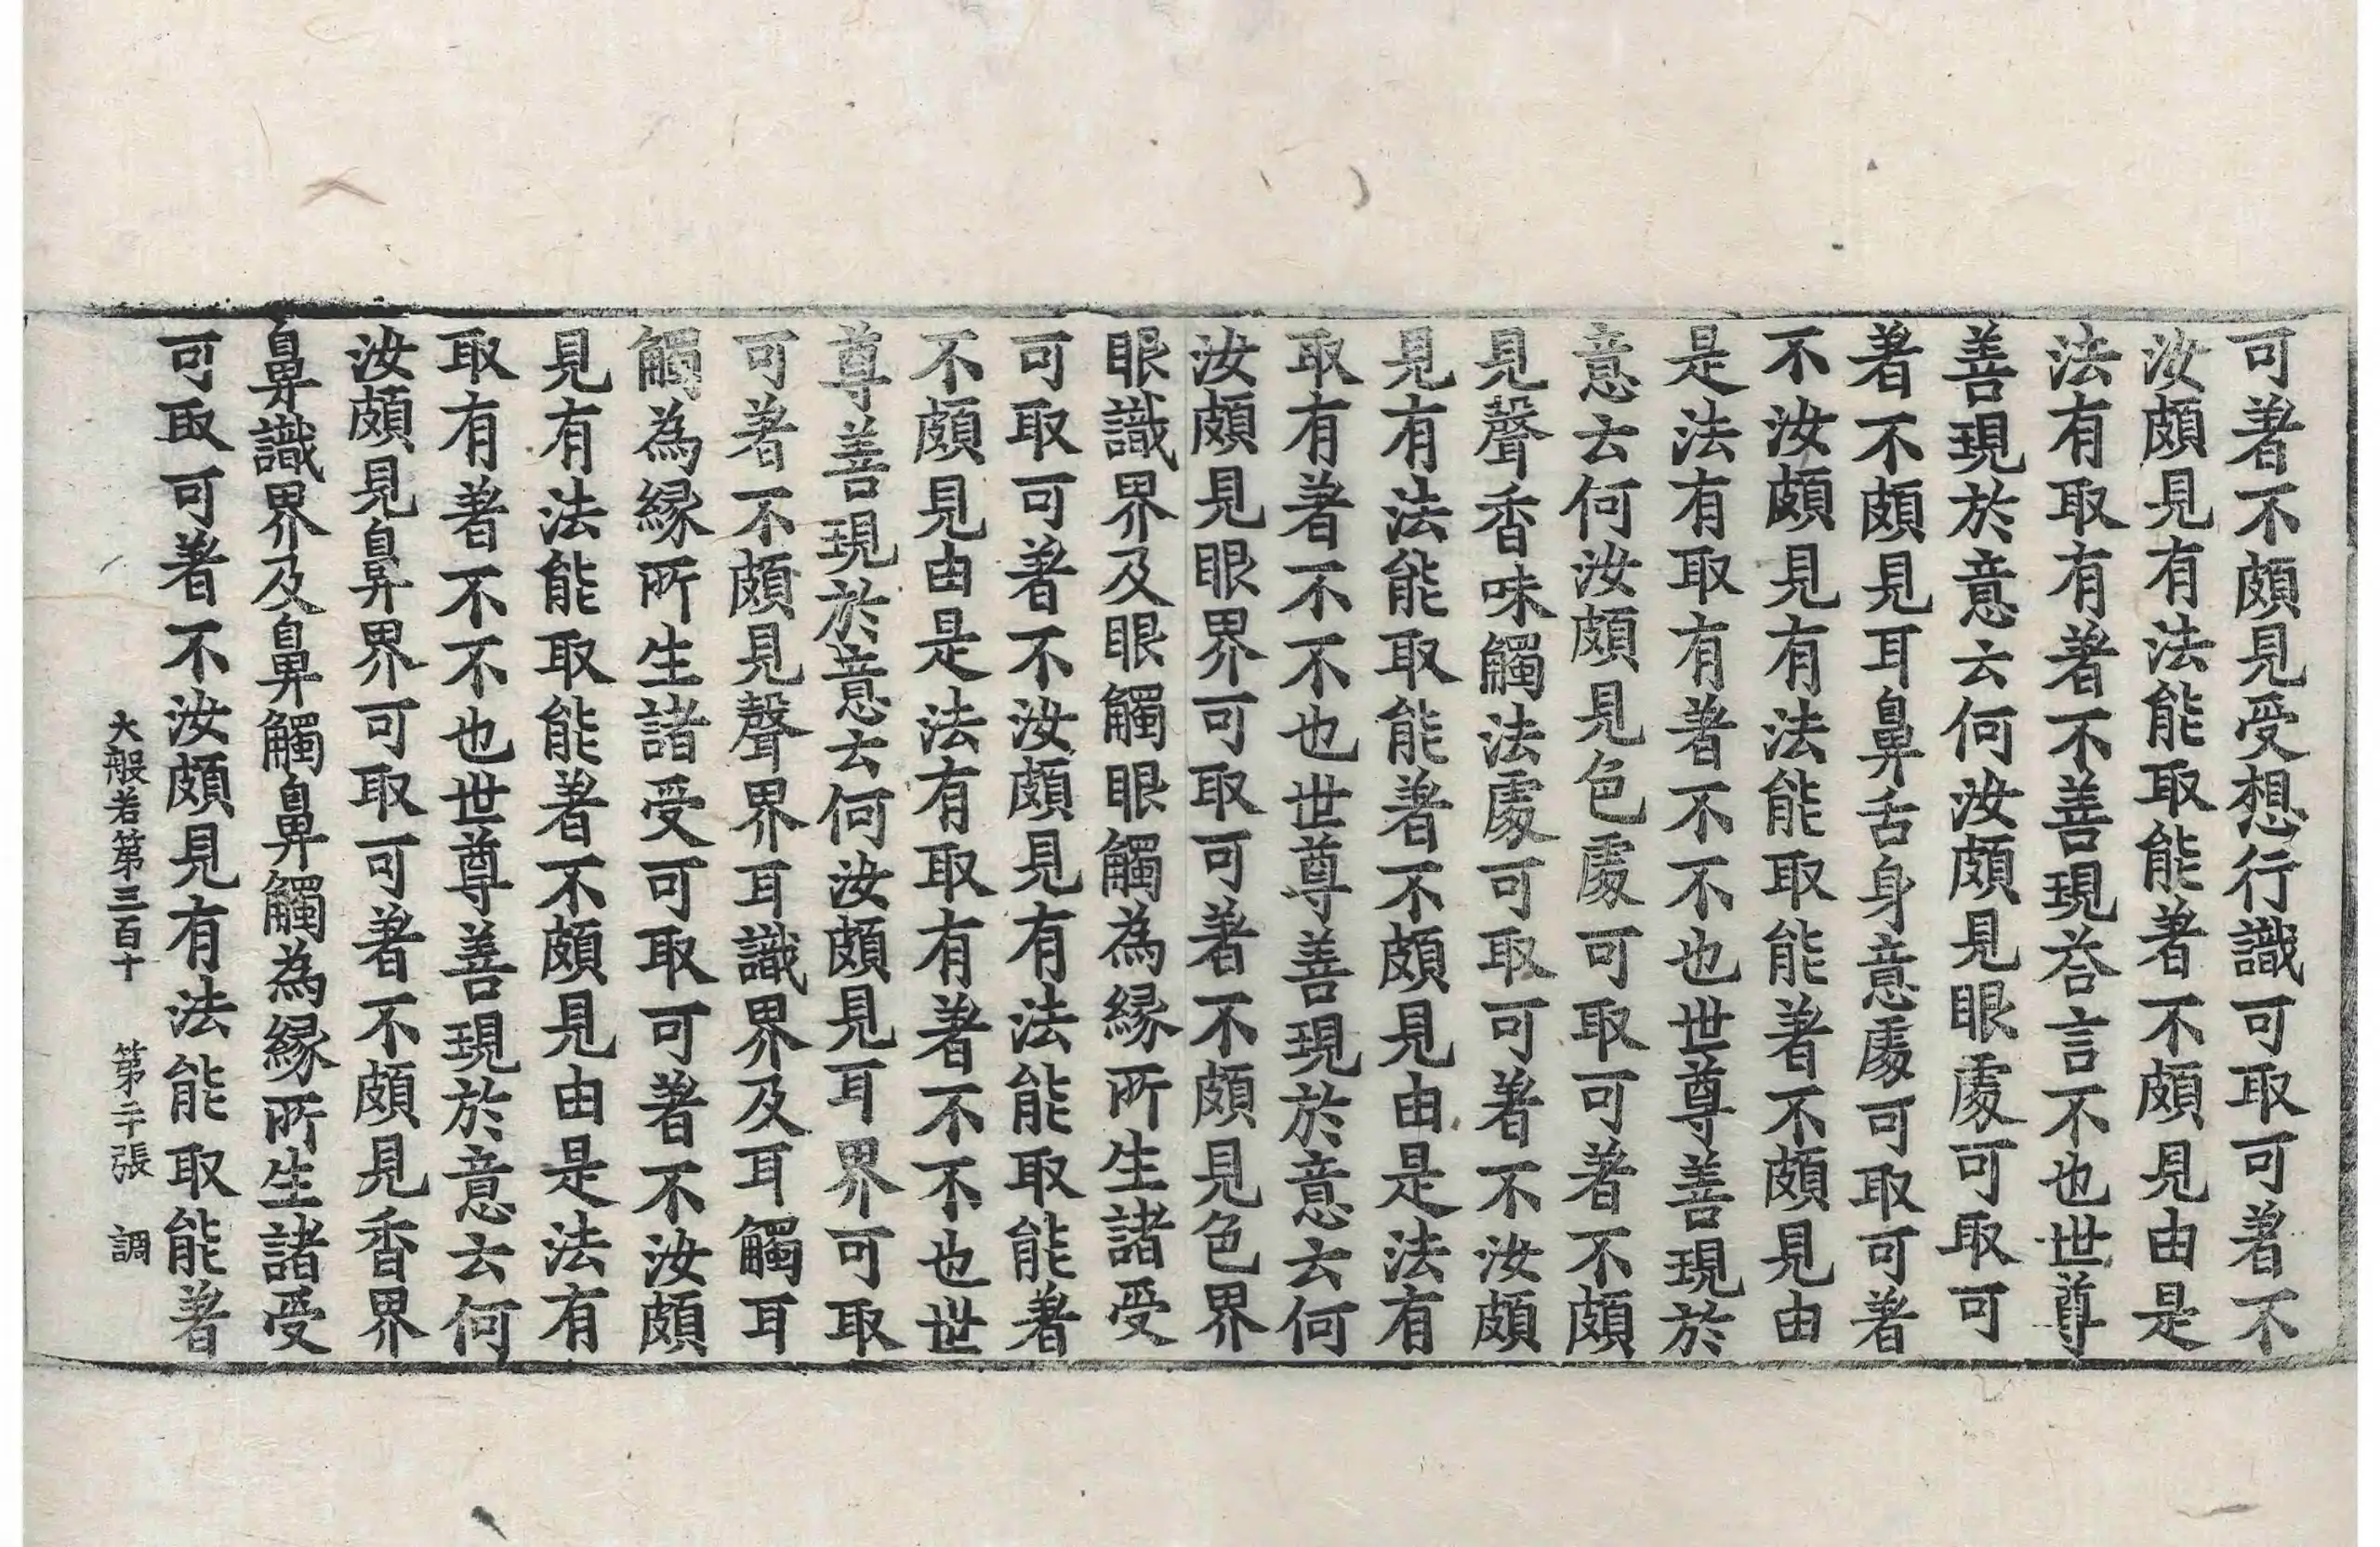 可著不頗見受想行識可取可著不
汝頗見有法能取能著不頗見由是
法有取有著不善現荅言不也世尊
善現於意云何汝頗見眼處可取可
著不頗見耳鼻舌身意處可取可著
不汝頗見有法能取能著不頗見由
是法有取有著不不也世尊善現於
意云何汝頗見色處可取可著不頗
見聲香味觸法處可取可著不汝頗
見有法能取能著不頗見由是法有
取有著不不也世尊善現於意云何
汝頗見眼界可取可著不頗見色界
眼識界及眼觸眼觸為緣所生諸受
可取可著不汝頗見有法能取能著
不頗見由是法有取有著不不也世
尊善現於意云何汝頗見耳界可取
可著不頗見聲界耳識界及耳觸耳
觸為緣所生諸受可取可著不汝頗
見有法能取能著不頗見由是法有
取有著不不也世尊善現於意云何
汝頗見鼻界可取可著不頗見香界
鼻識界及鼻觸鼻觸為緣所生諸受
可取可著不汝頗見有法能取能著
大般若第三百十 第二十張 調